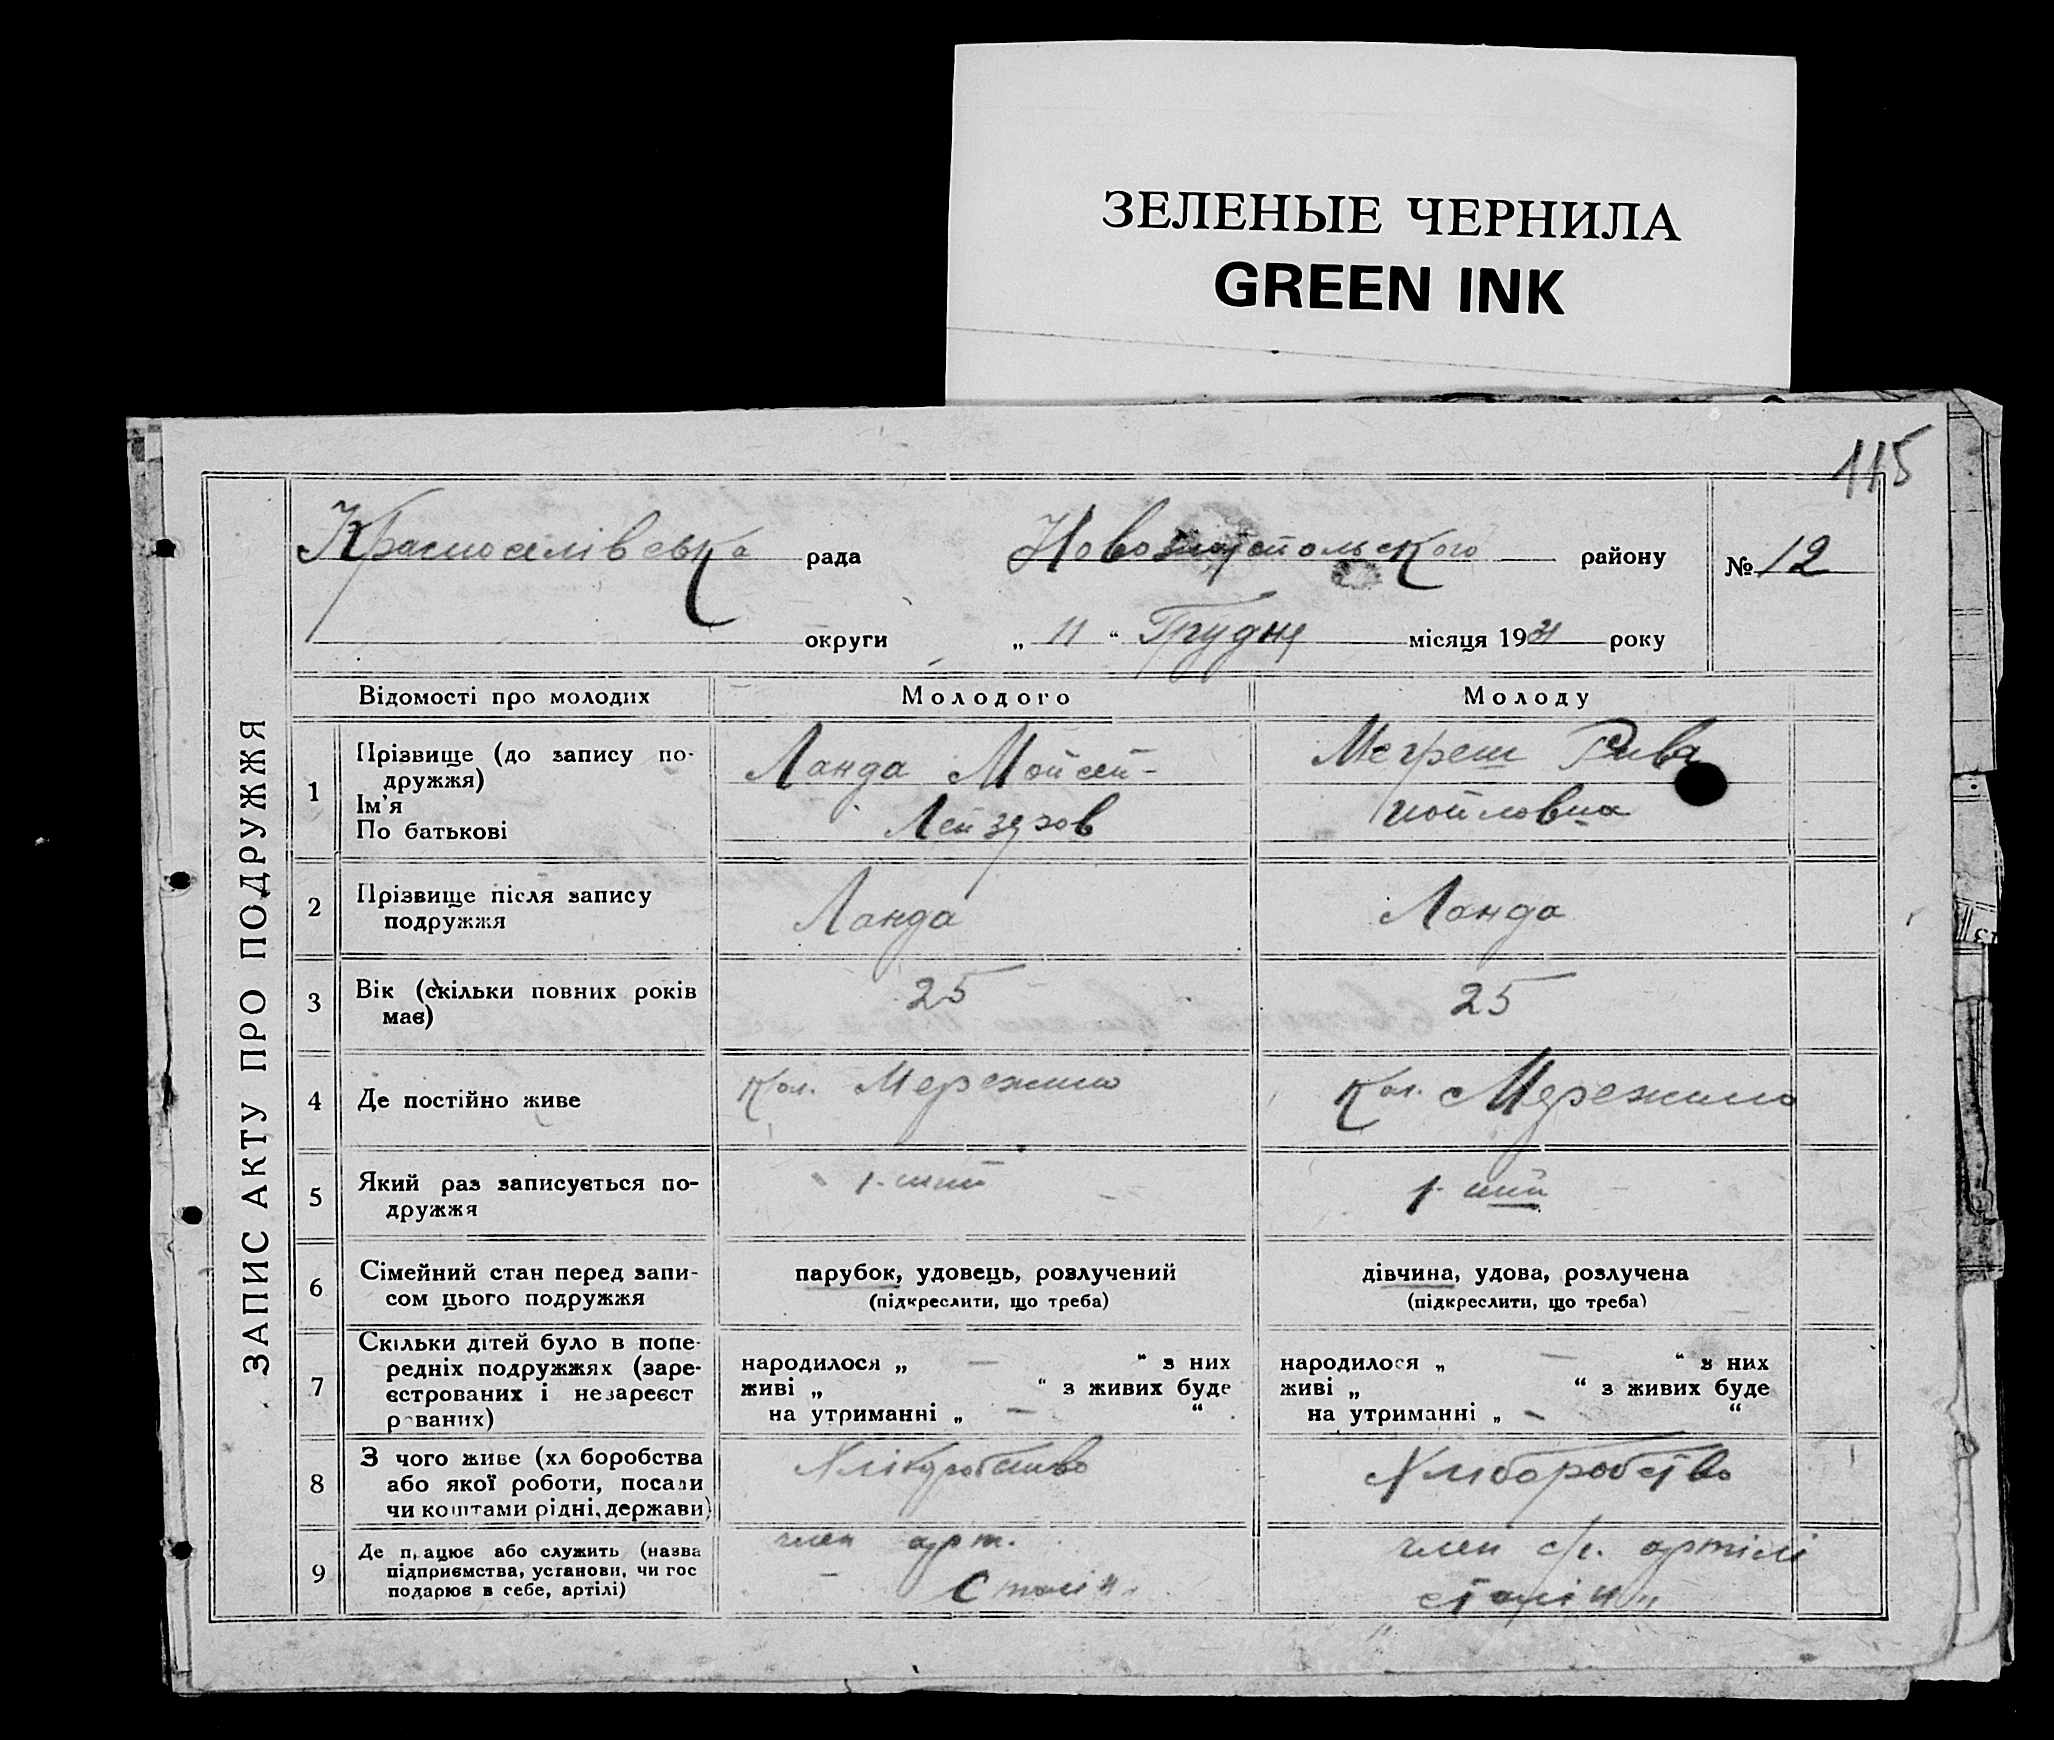 ЗЕЛЕНЫЕ ЧЕРНИЛА
GREEN INK
115
ЗАПИС АКТУ ПРО ПОДРУЖЖЯ
Красноселівська рада Новозлатопольського району № 12
округи „ 11 “ Грудня місяця 1931 року
Відомості про молодих Молодого Молоду
1 Прізвище (до запису по-
дружжя)
Ім'я
По батькові
Ланда Мойсей-
Лейзеров
Рива
Иойловна
2 Прізвище після запису
подружжя
Ланда Ланда
3 Вік (скільки повних років
має)
25 25
4 Де постійно живе
Кол. Межеричи
5 Який раз записується по-
дружжя
1-ший 1-ший
6 Сімейний стан перед запи-
сом цього подружжя
парубок, удовець, розлучений
(підкреслити, що треба)
дівчина, удова, розлучена
(підкреслити, що треба)
7 Скільки дітей було в попе-
редніх подружжях (заре-
єстрованих і незареєст
рованих)
народилося „ — “ з них
живі „ “ з живих буде
на утриманні „ — “
народилося „ — “ з них
живі „ “ з живих буде
на утриманні „ - “
8 З чого живе (хл боробства
або якої роботи, посади
чи коштами рідні, держави)
Хліборобство
9 Де працює або служить (назва
підприємства, установи, чи гос
подарює в себе, артілі)
член арт.
Сталін
член с/г. артілі
„Сталін„